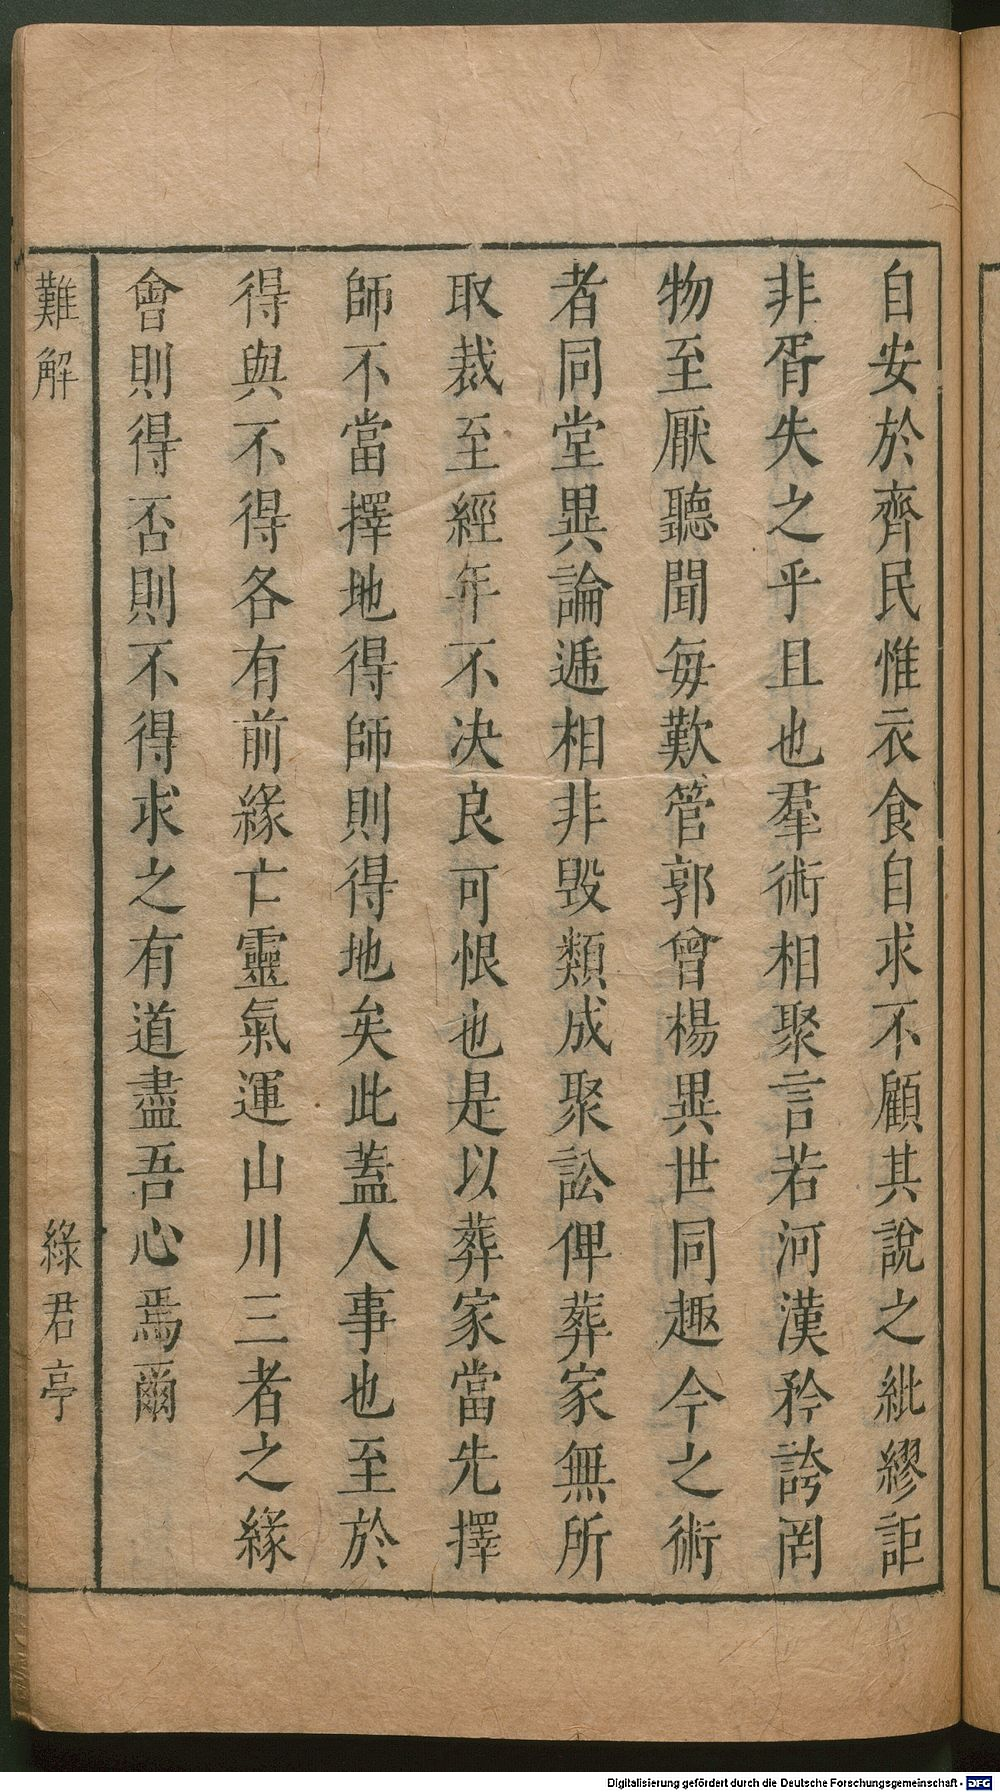 自安於齊民惟衣食自求不顧其說之紕繆詎
非胥失之乎且也羣術相聚言若河漢矜誇罔
物至厭聽聞每歎管郭曾楊異世同趣今之術
者同堂異論遞相非毀類成聚訟俾葬家無所
取裁至經年不決良可恨也是以葬家當先擇
師不當擇地得師則得地矣此蓋人事也至於
得與不得各有前緣亡靈氣運山川三者之緣
會則得否則不得求之有道盡吾心焉爾
難解
綠君亭
Digitalisierung gefördert durch die Deutsche Forschungsgemeinschaft - DFG